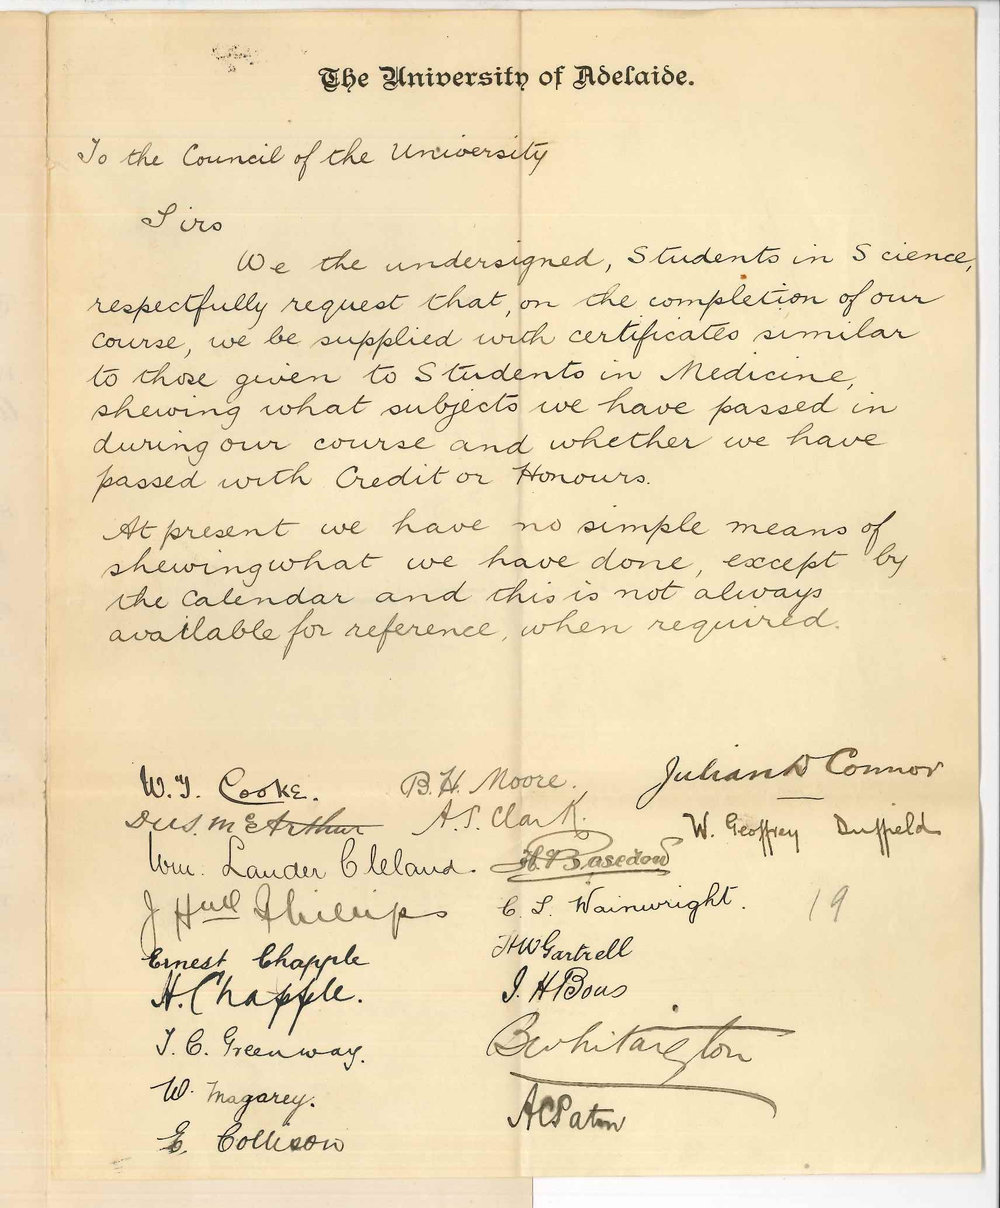 The University of Adelaide.
To the Council of the University
Sirs
We the undersigned, Students in Science,
respectfully request that, on the completion of our
course, we be supplied with certificates similar
to those given to Students in Medicine,
shewing what subjects we have passed in
during our course and whether we have
passed with Credit or Honours.
At present we have no simple means of
shewing what we have done, except by
the Calendar and this is not always
available for reference, when required.
W. T. Cooke.
McArthur
Wm. Lauder Cleland.
J Hull Phillips
Ernest Chapple
H. Chapple.
T. C. Greenway.
W. Magarey.
E. Collison
B. H. Moore.
A. S. Clark.
H. Basedow
C. S. Wainwright.
H W Gartrell
I. H Boas
B Whitington
A C Paton
Julian Connor
W. Geoffrey Duffield
19